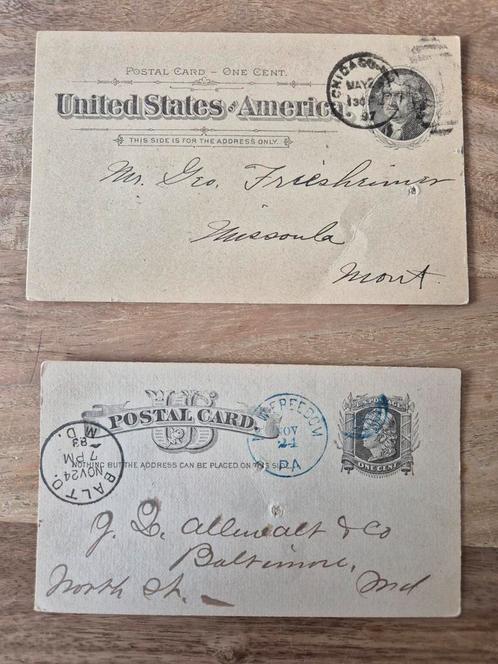 POSTAL CARD – ONE CENT.
United States of America
THIS SIDE IS FOR THE ADDRESS ONLY.
CHICAGO, ILL.
MAY
97
Mr. Geo. Friesheimer
Missoula
Mont.
U.S.
POSTAL CARD.
NOTHING BUT THE ADDRESS CAN BE PLACED ON THIS SIDE
BALTO
NOV 24
7 PM
83
M D.
NEW FREEDOM
NOV
24
PA
U.S. POSTAGE
ONE CENT
J. D. Allewalt & Co
Baltimore,
North St. Md